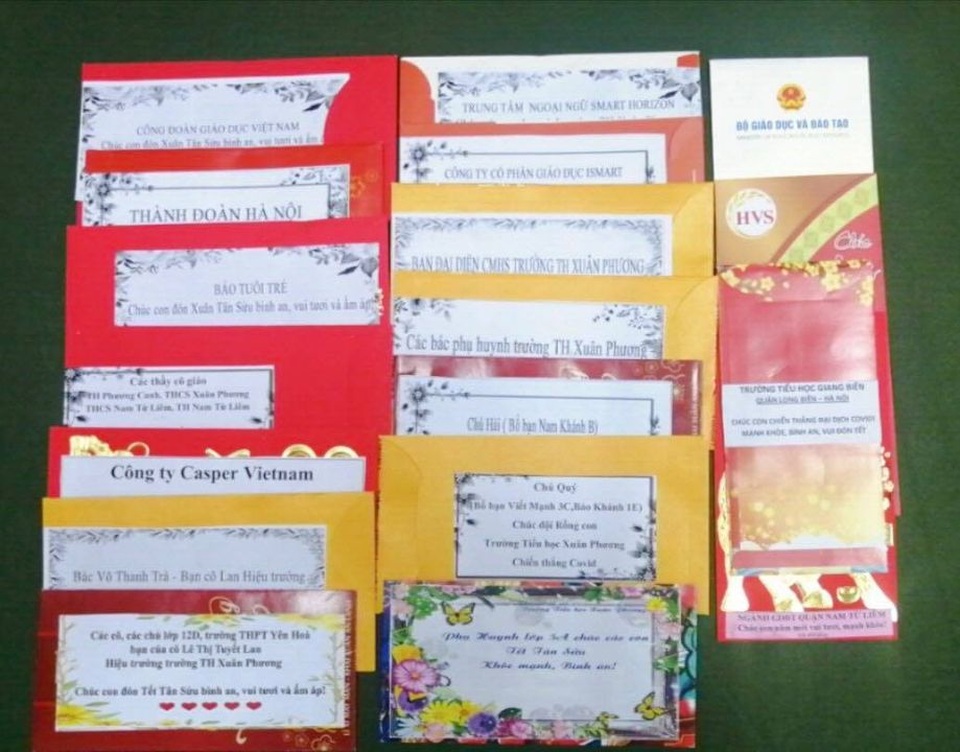 CÔNG ĐOÀN GIÁO DỤC VIỆT NAM
Chúc con đón Xuân Tân Sửu bình an, vui tươi và ấm
THÀNH ĐOÀN HÀ NỘI
BÁO TUỔI TRẺ
Chúc con đón Xuân Tân Sửu bình an, vui tươi và ấm áp
Các thầy cô giáo
TH Phương Canh, THCS Xuân Phương
THCS Nam Từ Liêm, TH Nam Từ Liêm
Công ty Casper Vietnam
Bác Võ Thanh Trà - Bạn cô Lan Hiệu trưởng
Các cô, các chú lớp 12D, trường THPT Yên Hoà
bạn của cô Lê Thị Tuyết Lan
Hiệu trưởng trường TH Xuân Phương
Chúc con đón Tết Tân Sửu bình an, vui tươi và ấm áp!
TRUNG TÂM NGOẠI NGỮ SMART HORIZON
CÔNG TY CỔ PHẦN GIÁO DỤC ISMART
BAN ĐẠI DIỆN CMHS TRƯỜNG TH XUÂN PHƯƠNG
Các bác phụ huynh trường TH Xuân Phương
Chú Hải ( Bố bạn Nam Khánh B)
Chú Quý
(Bố bạn Viết Mạnh 3C,Bảo Khánh 1E)
Chúc đội Rồng con
Trường Tiểu học Xuân Phương
Chiến thắng Covid
Trường Tiểu học Xuân Phương
Phụ Huynh lớp 5A chúc các con
Tết Tân Sửu
Khỏe mạnh, Bình an!
BỘ GIÁO DỤC VÀ ĐÀO TẠO
HVS
TRƯỜNG TIỂU HỌC GIANG BIÊN
QUẬN LONG BIÊN – HÀ NỘI
CHÚC CON CHIẾN THẮNG ĐẠI DỊCH COVID
MẠNH KHỎE, BÌNH AN, VUI ĐÓN TẾT
NGÀNH GDĐT QUẬN NAM TỪ LIÊM
Chúc con năm mới vui tươi, mạnh khỏe!